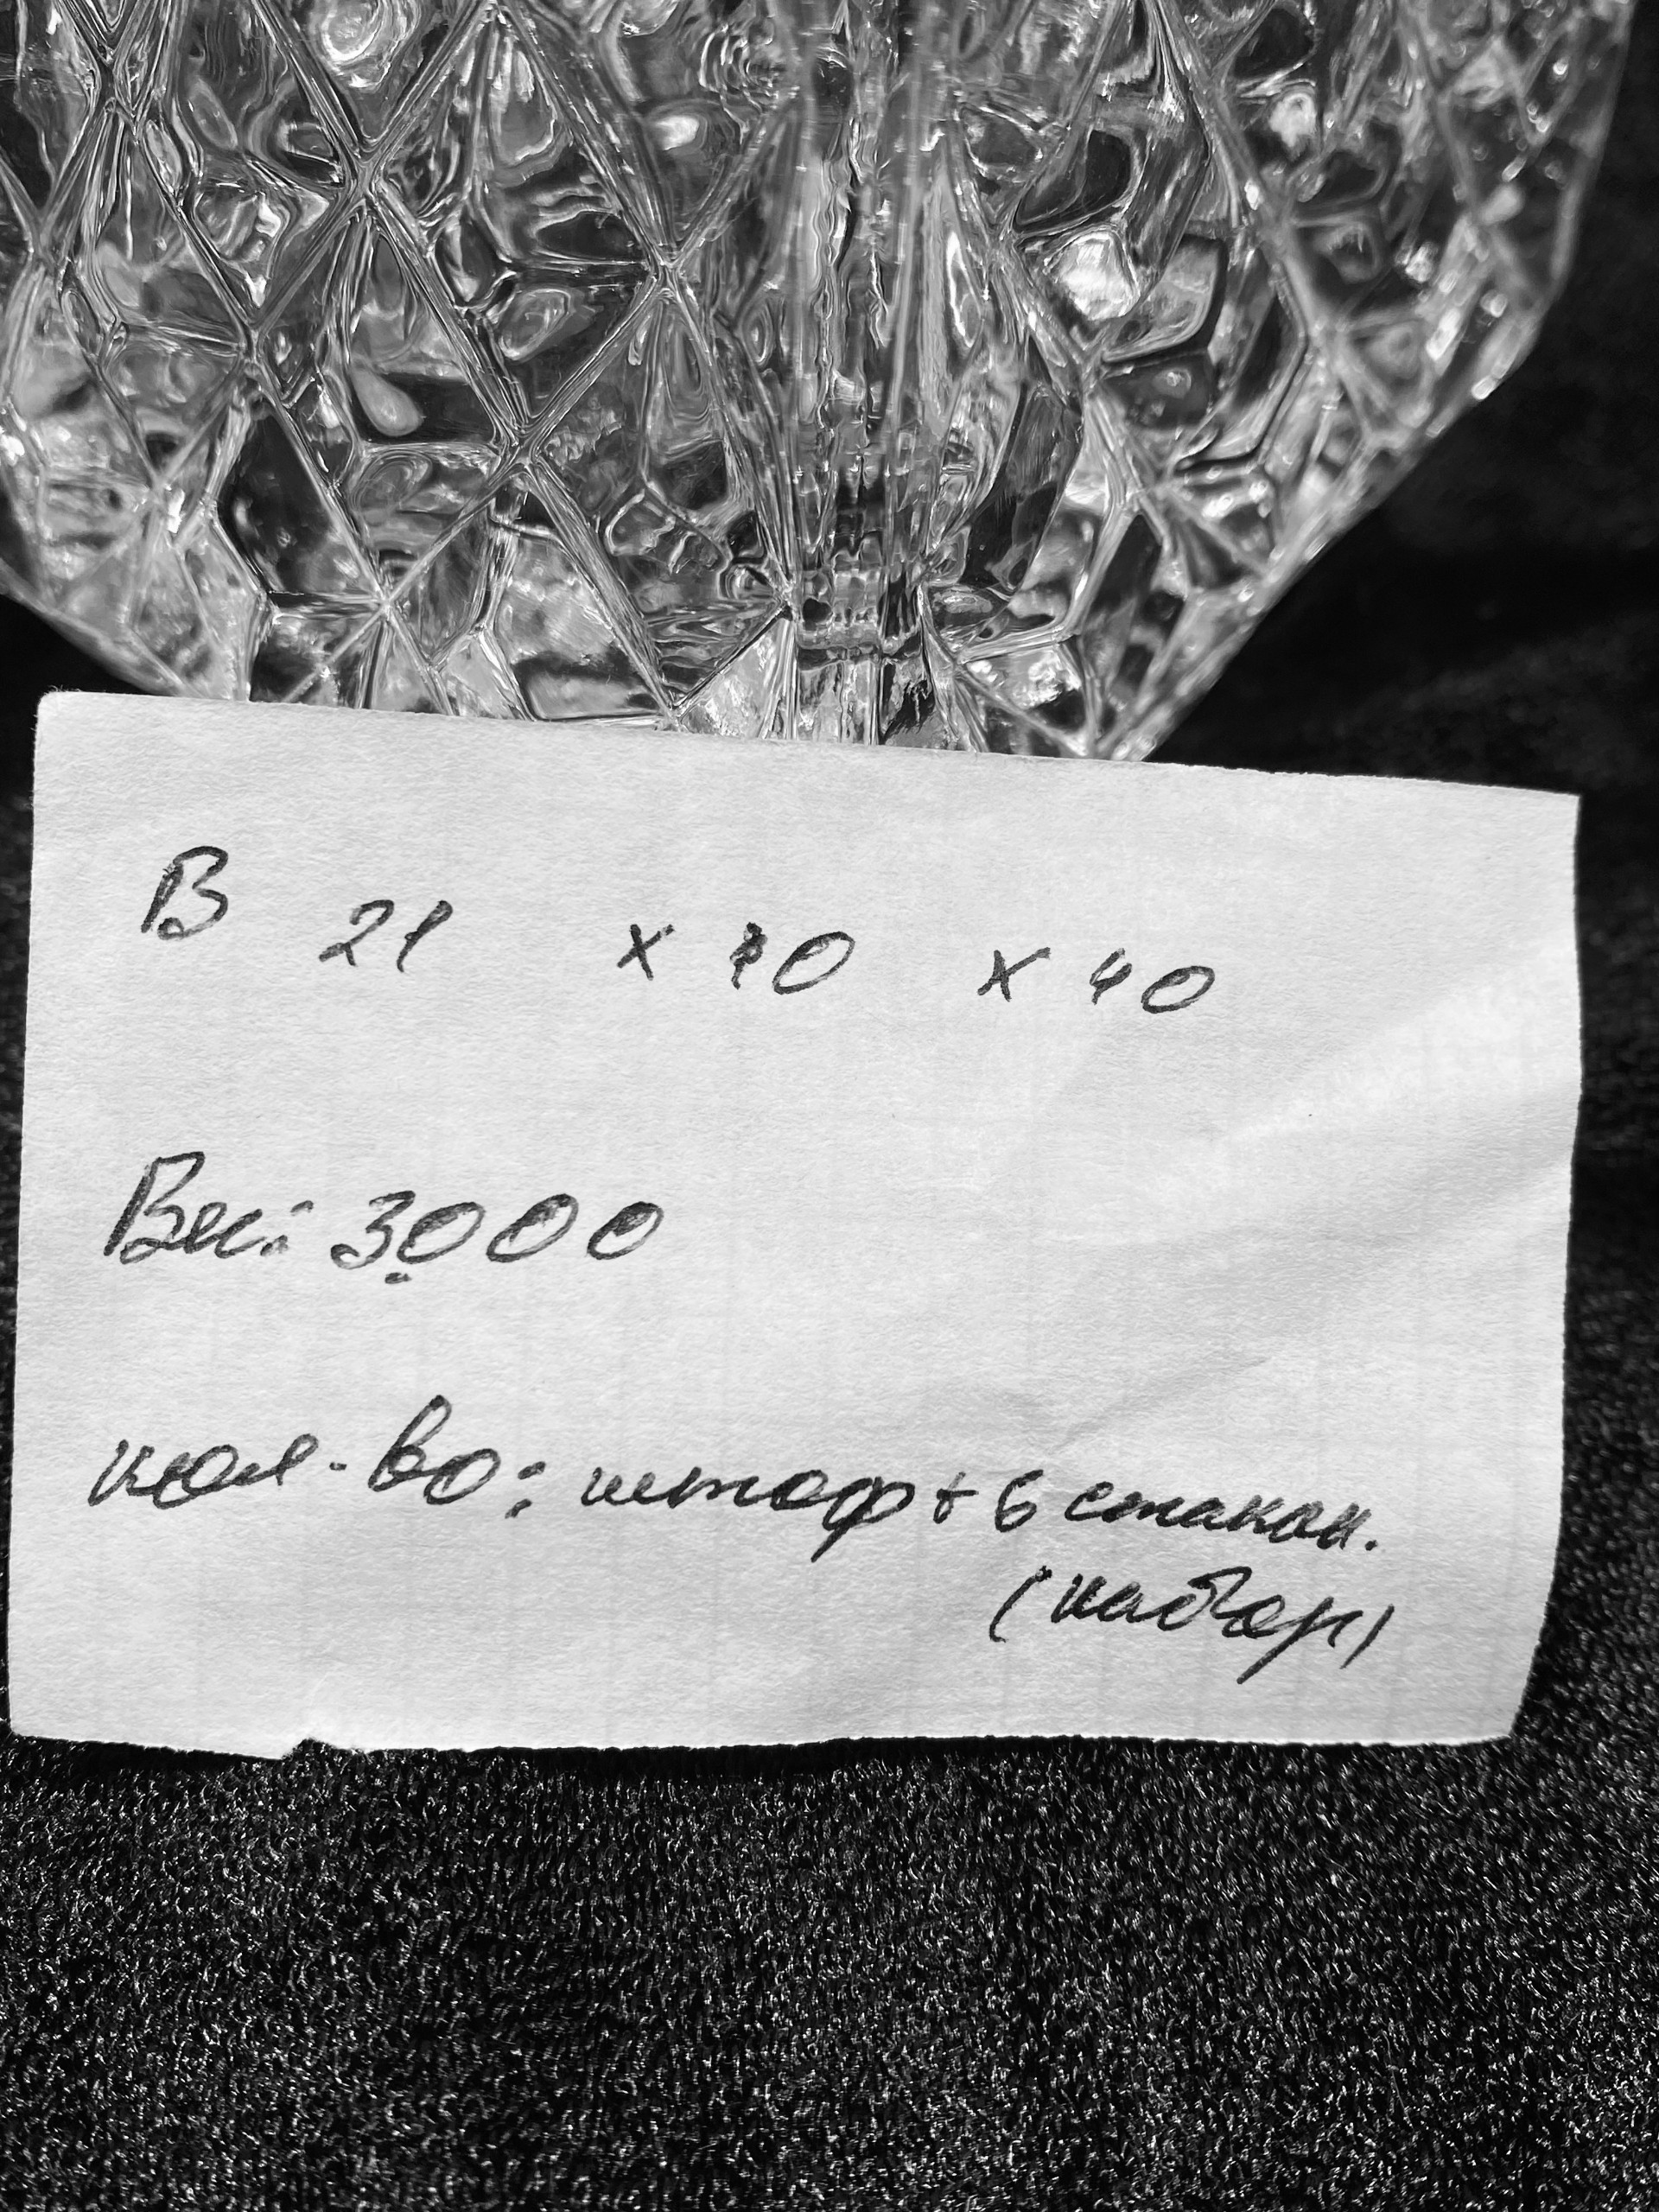 В 21 х 40 х 40
Вес: 3.000
кол-во: штоф + 6 стакан.
(набор)